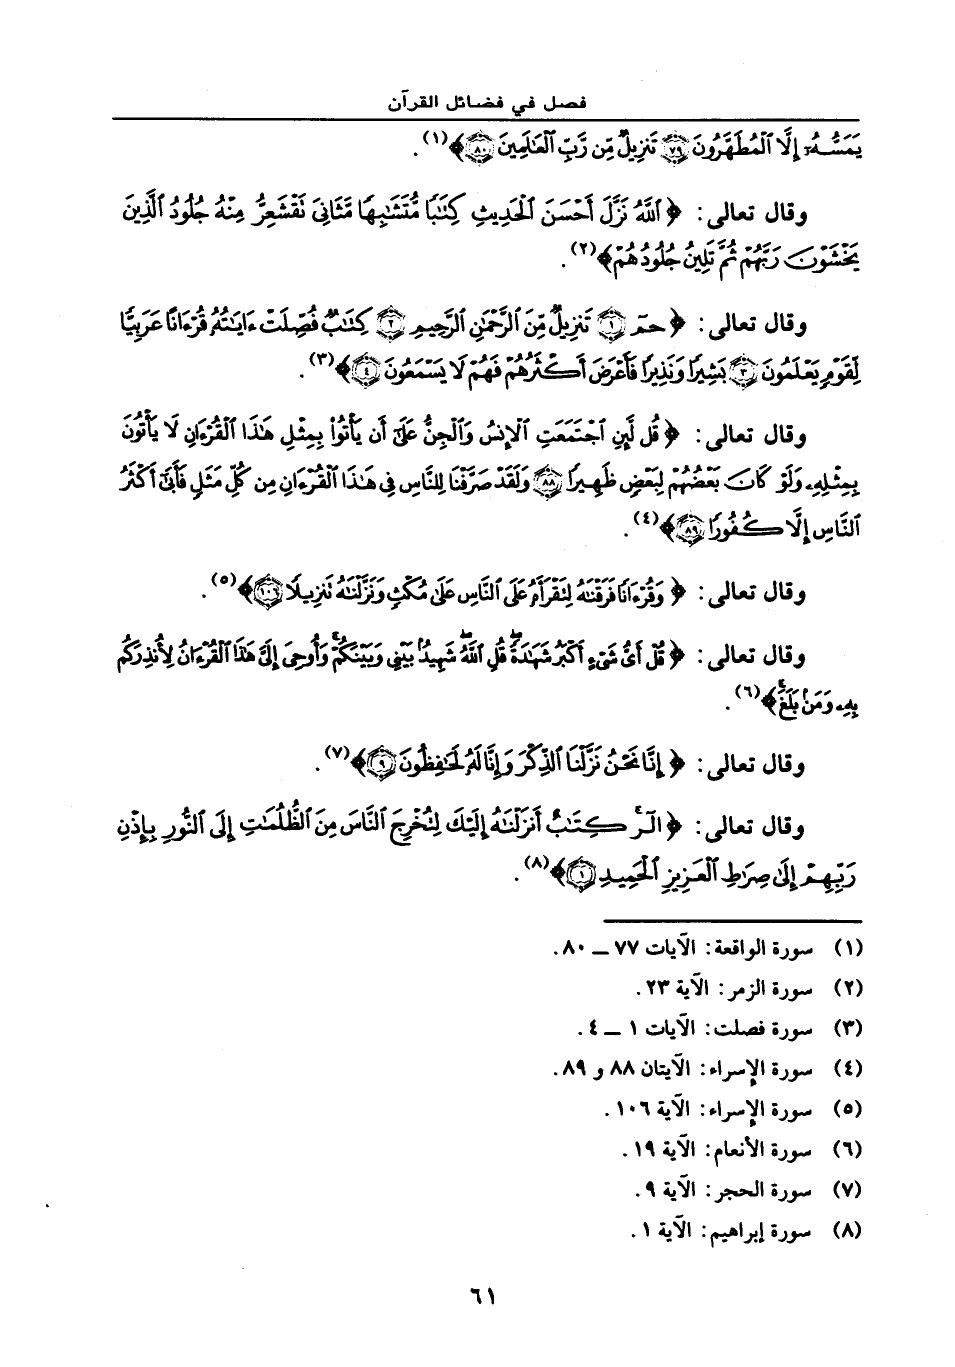 فصل في فضائل القرآن
يَمَسُّهُۥٓ إِلَّا ٱلْمُطَهَّرُونَ ۝٧٩ تَنزِيلٌ مِّن رَّبِّ ٱلْعَٰلَمِينَ ۝٨٠ ﴾(١).
وقال تعالى: ﴿ ٱللَّهُ نَزَّلَ أَحْسَنَ ٱلْحَدِيثِ كِتَٰبًا مُّتَشَٰبِهًا مَّثَانِىَ تَقْشَعِرُّ مِنْهُ جُلُودُ ٱلَّذِينَ
يَخْشَوْنَ رَبَّهُمْ ثُمَّ تَلِينُ جُلُودُهُمْ﴾(٢).
وقال تعالى: ﴿ حمٓ ۝١ تَنزِيلٌ مِّنَ ٱلرَّحْمَٰنِ ٱلرَّحِيمِ ۝٢ كِتَٰبٌ فُصِّلَتْ ءَايَٰتُهُۥ قُرْءَانًا عَرَبِيًّا
لِّقَوْمٍ يَعْلَمُونَ ۝٣ بَشِيرًا وَنَذِيرًا فَأَعْرَضَ أَكْثَرُهُمْ فَهُمْ لَا يَسْمَعُونَ ۝٤ ﴾(٣).
وقال تعالى: ﴿ قُل لَّئِنِ ٱجْتَمَعَتِ ٱلْإِنسُ وَٱلْجِنُّ عَلَىٰٓ أَن يَأْتُوا۟ بِمِثْلِ هَٰذَا ٱلْقُرْءَانِ لَا يَأْتُونَ
بِمِثْلِهِۦ وَلَوْ كَانَ بَعْضُهُمْ لِبَعْضٍ ظَهِيرًا ۝٨٨ وَلَقَدْ صَرَّفْنَا لِلنَّاسِ فِى هَٰذَا ٱلْقُرْءَانِ مِن كُلِّ مَثَلٍ فَأَبَىٰٓ أَكْثَرُ
ٱلنَّاسِ إِلَّا كُفُورًا ۝٨٩ ﴾(٤).
وقال تعالى: ﴿ وَقُرْءَانًا فَرَقْنَٰهُ لِتَقْرَأَهُۥ عَلَى ٱلنَّاسِ عَلَىٰ مُكْثٍ وَنَزَّلْنَٰهُ تَنزِيلًا ۝١٠٦ ﴾(٥).
وقال تعالى: ﴿ قُلْ أَىُّ شَىْءٍ أَكْبَرُ شَهَٰدَةً ۖ قُلِ ٱللَّهُ ۖ شَهِيدٌۢ بَيْنِى وَبَيْنَكُمْ ۚ وَأُوحِىَ إِلَىَّ هَٰذَا ٱلْقُرْءَانُ لِأُنذِرَكُم
بِهِۦ وَمَنۢ بَلَغَ ۚ﴾(٦).
وقال تعالى: ﴿ إِنَّا نَحْنُ نَزَّلْنَا ٱلذِّكْرَ وَإِنَّا لَهُۥ لَحَٰفِظُونَ ۝٩ ﴾(٧).
وقال تعالى: ﴿ الٓر ۚ كِتَٰبٌ أَنزَلْنَٰهُ إِلَيْكَ لِتُخْرِجَ ٱلنَّاسَ مِنَ ٱلظُّلُمَٰتِ إِلَى ٱلنُّورِ بِإِذْنِ
رَبِّهِمْ إِلَىٰ صِرَٰطِ ٱلْعَزِيزِ ٱلْحَمِيدِ ۝١ ﴾(٨).
(١) سورة الواقعة: الآيات ٧٧ ــ ٨٠.
(٢) سورة الزمر: الآية ٢٣.
(٣) سورة فصلت: الآيات ١ ــ ٤.
(٤) سورة الإسراء: الآيتان ٨٨ و ٨٩.
(٥) سورة الإسراء: الآية ١٠٦.
(٦) سورة الأنعام: الآية ١٩.
(٧) سورة الحجر: الآية ٩.
(٨) سورة إبراهيم: الآية ١.
٦١